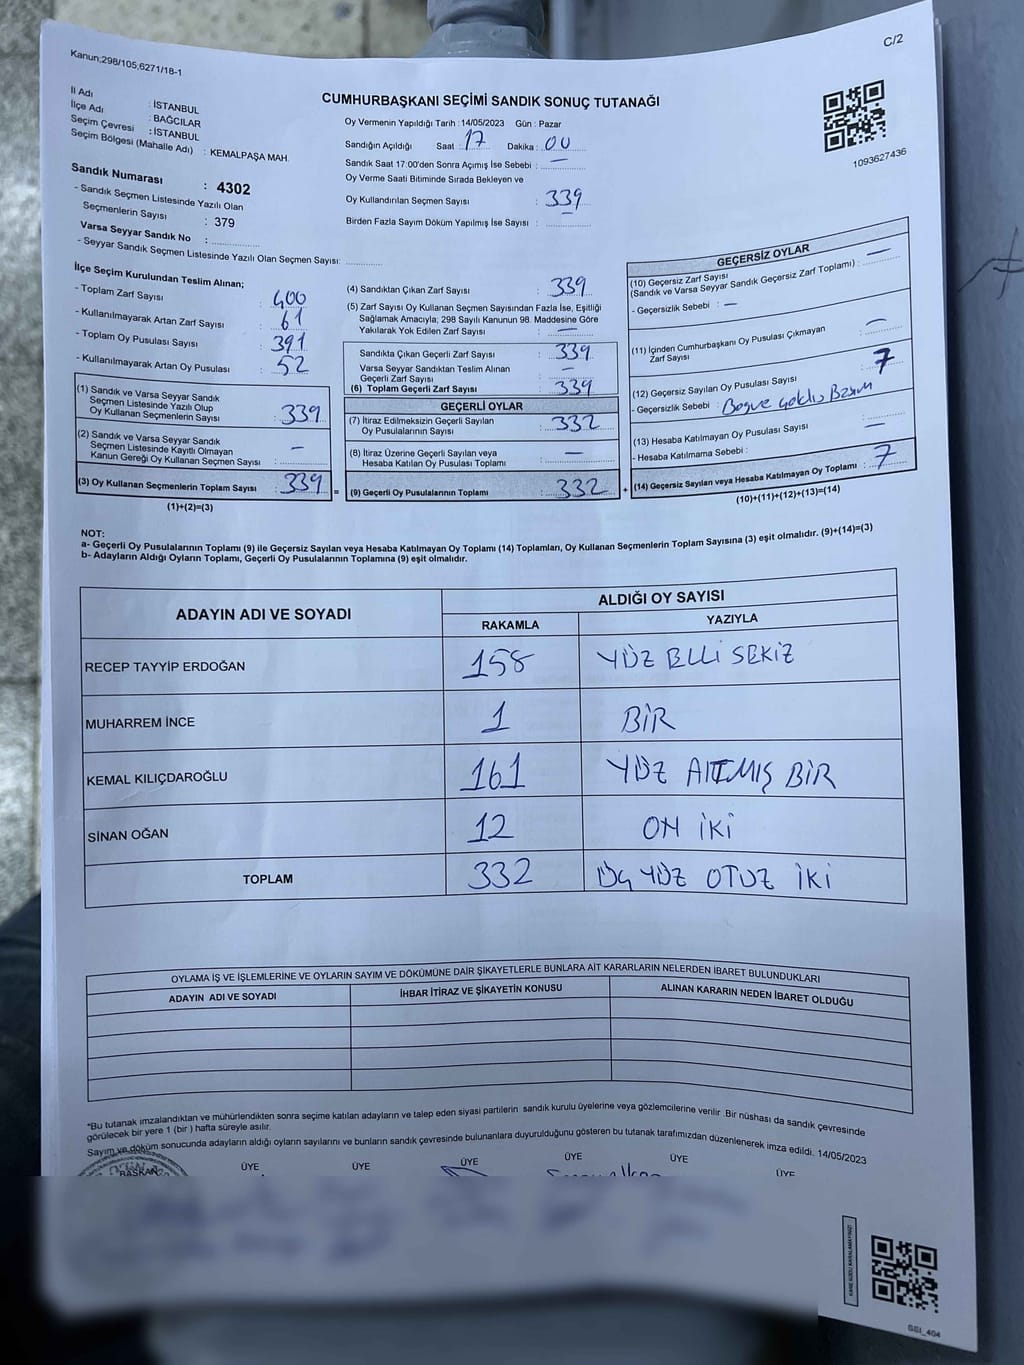 Kanun;298/105,6271/18-1
C/2
CUMHURBAŞKANI SEÇİMİ SANDIK SONUÇ TUTANAĞI
İl Adı : İSTANBUL
İlçe Adı : BAĞCILAR
Seçim Çevresi : İSTANBUL
Seçim Bölgesi (Mahalle Adı) : KEMALPAŞA MAH.
Sandık Numarası : 4302
- Sandık Seçmen Listesinde Yazılı Olan
Seçmenlerin Sayısı : 379
Varsa Seyyar Sandık No :
- Seyyar Sandık Seçmen Listesinde Yazılı Olan Seçmen Sayısı:
Oy Vermenin Yapıldığı Tarih : 14/05/2023 Gün : Pazar
Sandığın Açıldığı Saat : 17 Dakika : 00
Sandık Saat 17:00'den Sonra Açımış İse Sebebi : —
Oy Verme Saati Bitiminde Sırada Bekleyen ve
Oy Kullandırılan Seçmen Sayısı : 339
Birden Fazla Sayım Döküm Yapılmış İse Sayısı : —
1093627436
İlçe Seçim Kurulundan Teslim Alınan;
- Toplam Zarf Sayısı : 400
- Kullanılmayarak Artan Zarf Sayısı : 61
- Toplam Oy Pusulası Sayısı : 391
- Kullanılmayarak Artan Oy Pusulası : 52
(1) Sandık ve Varsa Seyyar Sandık
Seçmen Listesinde Yazılı Olup
Oy Kullanan Seçmenlerin Sayısı : 339
(2) Sandık ve Varsa Seyyar Sandık
Seçmen Listesinde Kayıtlı Olmayan
Kanun Gereği Oy Kullanan Seçmen Sayısı : —
(3) Oy Kullanan Seçmenlerin Toplam Sayısı : 339 =
(1)+(2)=(3)
(4) Sandıktan Çıkan Zarf Sayısı : 339
(5) Zarf Sayısı Oy Kullanan Seçmen Sayısından Fazla İse, Eşitliği
Sağlamak Amacıyla; 298 Sayılı Kanunun 98. Maddesine Göre
Yakılarak Yok Edilen Zarf Sayısı : —
Sandıkta Çıkan Geçerli Zarf Sayısı : 339
Varsa Seyyar Sandıktan Teslim Alınan
Geçerli Zarf Sayısı : —
(6) Toplam Geçerli Zarf Sayısı : 339
GEÇERLİ OYLAR
(7) İtiraz Edilmeksizin Geçerli Sayılan
Oy Pusulalarının Sayısı : 332
(8) İtiraz Üzerine Geçerli Sayılan veya
Hesaba Katılan Oy Pusulası Toplamı : —
(9) Geçerli Oy Pusulalarının Toplamı : 332 +
GEÇERSİZ OYLAR
(10) Geçersiz Zarf Sayısı
(Sandık ve Varsa Seyyar Sandık Geçersiz Zarf Toplamı) : —
- Geçersizlik Sebebi : —
(11) İçinden Cumhurbaşkanı Oy Pusulası Çıkmayan
Zarf Sayısı : —
(12) Geçersiz Sayılan Oy Pusulası Sayısı : 7
- Geçersizlik Sebebi :
(13) Hesaba Katılmayan Oy Pusulası Sayısı : —
- Hesaba Katılmama Sebebi : —
(14) Geçersiz Sayılan veya Hesaba Katılmayan Oy Toplamı : 7
(10)+(11)+(12)+(13)=(14)
NOT:
a- Geçerli Oy Pusulalarının Toplamı (9) ile Geçersiz Sayılan veya Hesaba Katılmayan Oy Toplamı (14) Toplamları, Oy Kullanan Seçmenlerin Toplam Sayısına (3) eşit olmalıdır. (9)+(14)=(3)
b- Adayların Aldığı Oyların Toplamı, Geçerli Oy Pusulalarının Toplamına (9) eşit olmalıdır.
ADAYIN ADI VE SOYADI ALDIĞI OY SAYISI
RAKAMLA YAZIYLA
RECEP TAYYİP ERDOĞAN 158 YÜZ ELLİ SEKİZ
MUHARREM İNCE 1 BİR
KEMAL KILIÇDAROĞLU 161 YÜZ ALTMIŞ BİR
SİNAN OĞAN 12 ON İKİ
TOPLAM 332 ÜÇ YÜZ OTUZ İKİ
OYLAMA İŞ VE İŞLEMLERİNE VE OYLARIN SAYIM VE DÖKÜMÜNE DAİR ŞİKAYETLERLE BUNLARA AİT KARARLARIN NELERDEN İBARET BULUNDUKLARI
ADAYIN ADI VE SOYADI İHBAR İTİRAZ VE ŞİKAYETİN KONUSU ALINAN KARARIN NEDEN İBARET OLDUĞU
*Bu tutanak imzalandıktan ve mühürlendikten sonra seçime katılan adayların ve talep eden siyasi partilerin sandık kurulu üyelerine veya gözlemcilerine verilir. Bir nüshası da sandık çevresinde
görülecek bir yere 1 (bir ) hafta süreyle asılır.
Sayım ve döküm sonucunda adayların aldığı oyların sayılarını ve bunların sandık çevresinde bulunanlara duyurulduğunu gösteren bu tutanak tarafımızdan düzenlenerek imza edildi. 14/05/2023
BAŞKAN ÜYE ÜYE ÜYE ÜYE ÜYE ÜYE
SSI_404